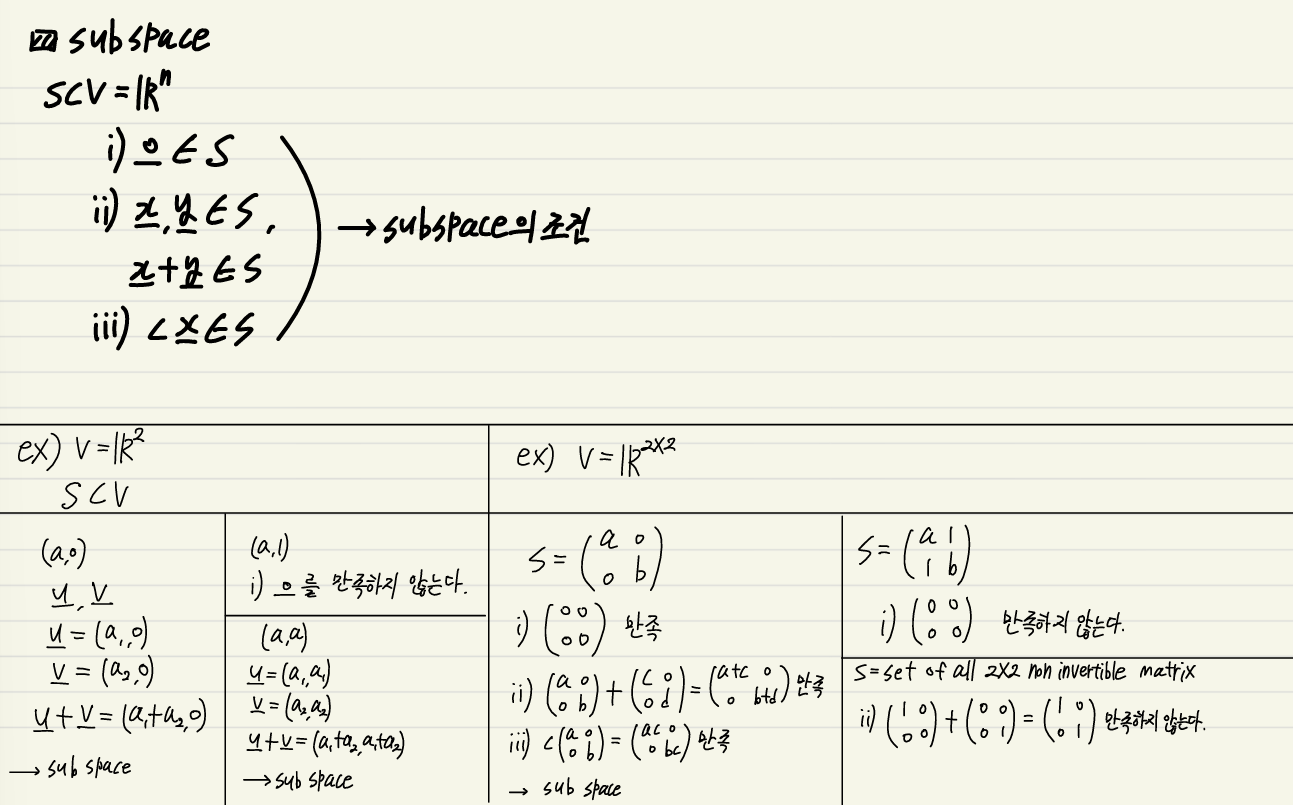 subspace
S⊂V = ℝⁿ
i) 0 ∈ S
ii) x, y ∈ S,
x + y ∈ S
iii) cx ∈ S
→ subspace의 조건
ex) V = ℝ²
S ⊂ V
(a,0)
u, v
u = (a₁,0)
v = (a₂,0)
u + v = (a₁+a₂,0)
→ sub space
(a,1)
i) 0 를 만족하지 않는다.
(a,a)
u = (a₁,a₁)
v = (a₂,a₂)
u + v = (a₁+a₂,a₁+a₂)
→ sub space
ex) V = ℝ²ˣ²
S = (a 0
0 b)
i) (0 0
0 0) 만족
ii) (a 0
0 b) + (c 0
0 d) = (a+c 0
0 b+d) 만족
iii) c(a 0
0 b) = (ac 0
0 bc) 만족
→ sub space
S = (a 1
1 b)
i) (0 0
0 0) 만족하지 않는다.
S = set of all 2X2 non invertible matrix
ii) (1 0
0 0) + (0 0
0 1) = (1 0
0 1) 만족하지 않는다.